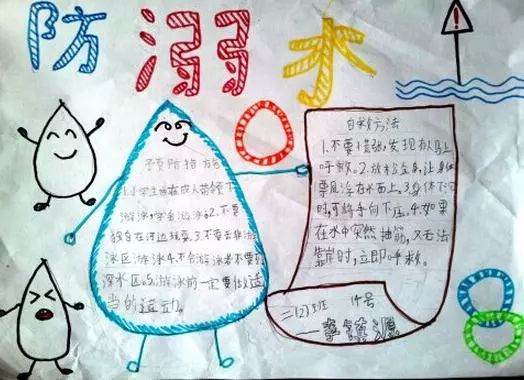 防溺水
预防措施
1.小学生应在成人带领下
游泳,学会游泳。2.不要
独自在河边玩耍。3.不要去非游
泳区游泳。4.不会游泳者不要到
深水区。5.游泳前一定要做适
当的运动。
自救方法
1.不要慌张,发现有人马上
呼救。2.放松全身,让身体
飘浮在水面上。3.身体下沉
时,可将手向下压。4.如果
在水中突然抽筋,又无法
靠岸时,立即呼救。
三(2)班 14号
李镇源